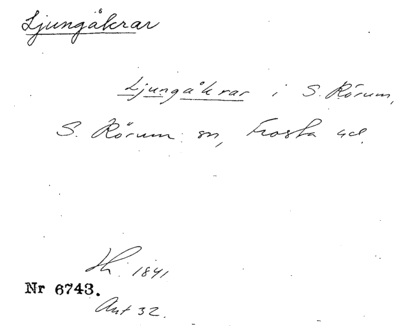 Ljungåkrar
Ljungåkrar i S. Rörum,
S. Rörum sn, Frosta hd.
Sk. 1841
Nr 6743.
Ant 32.